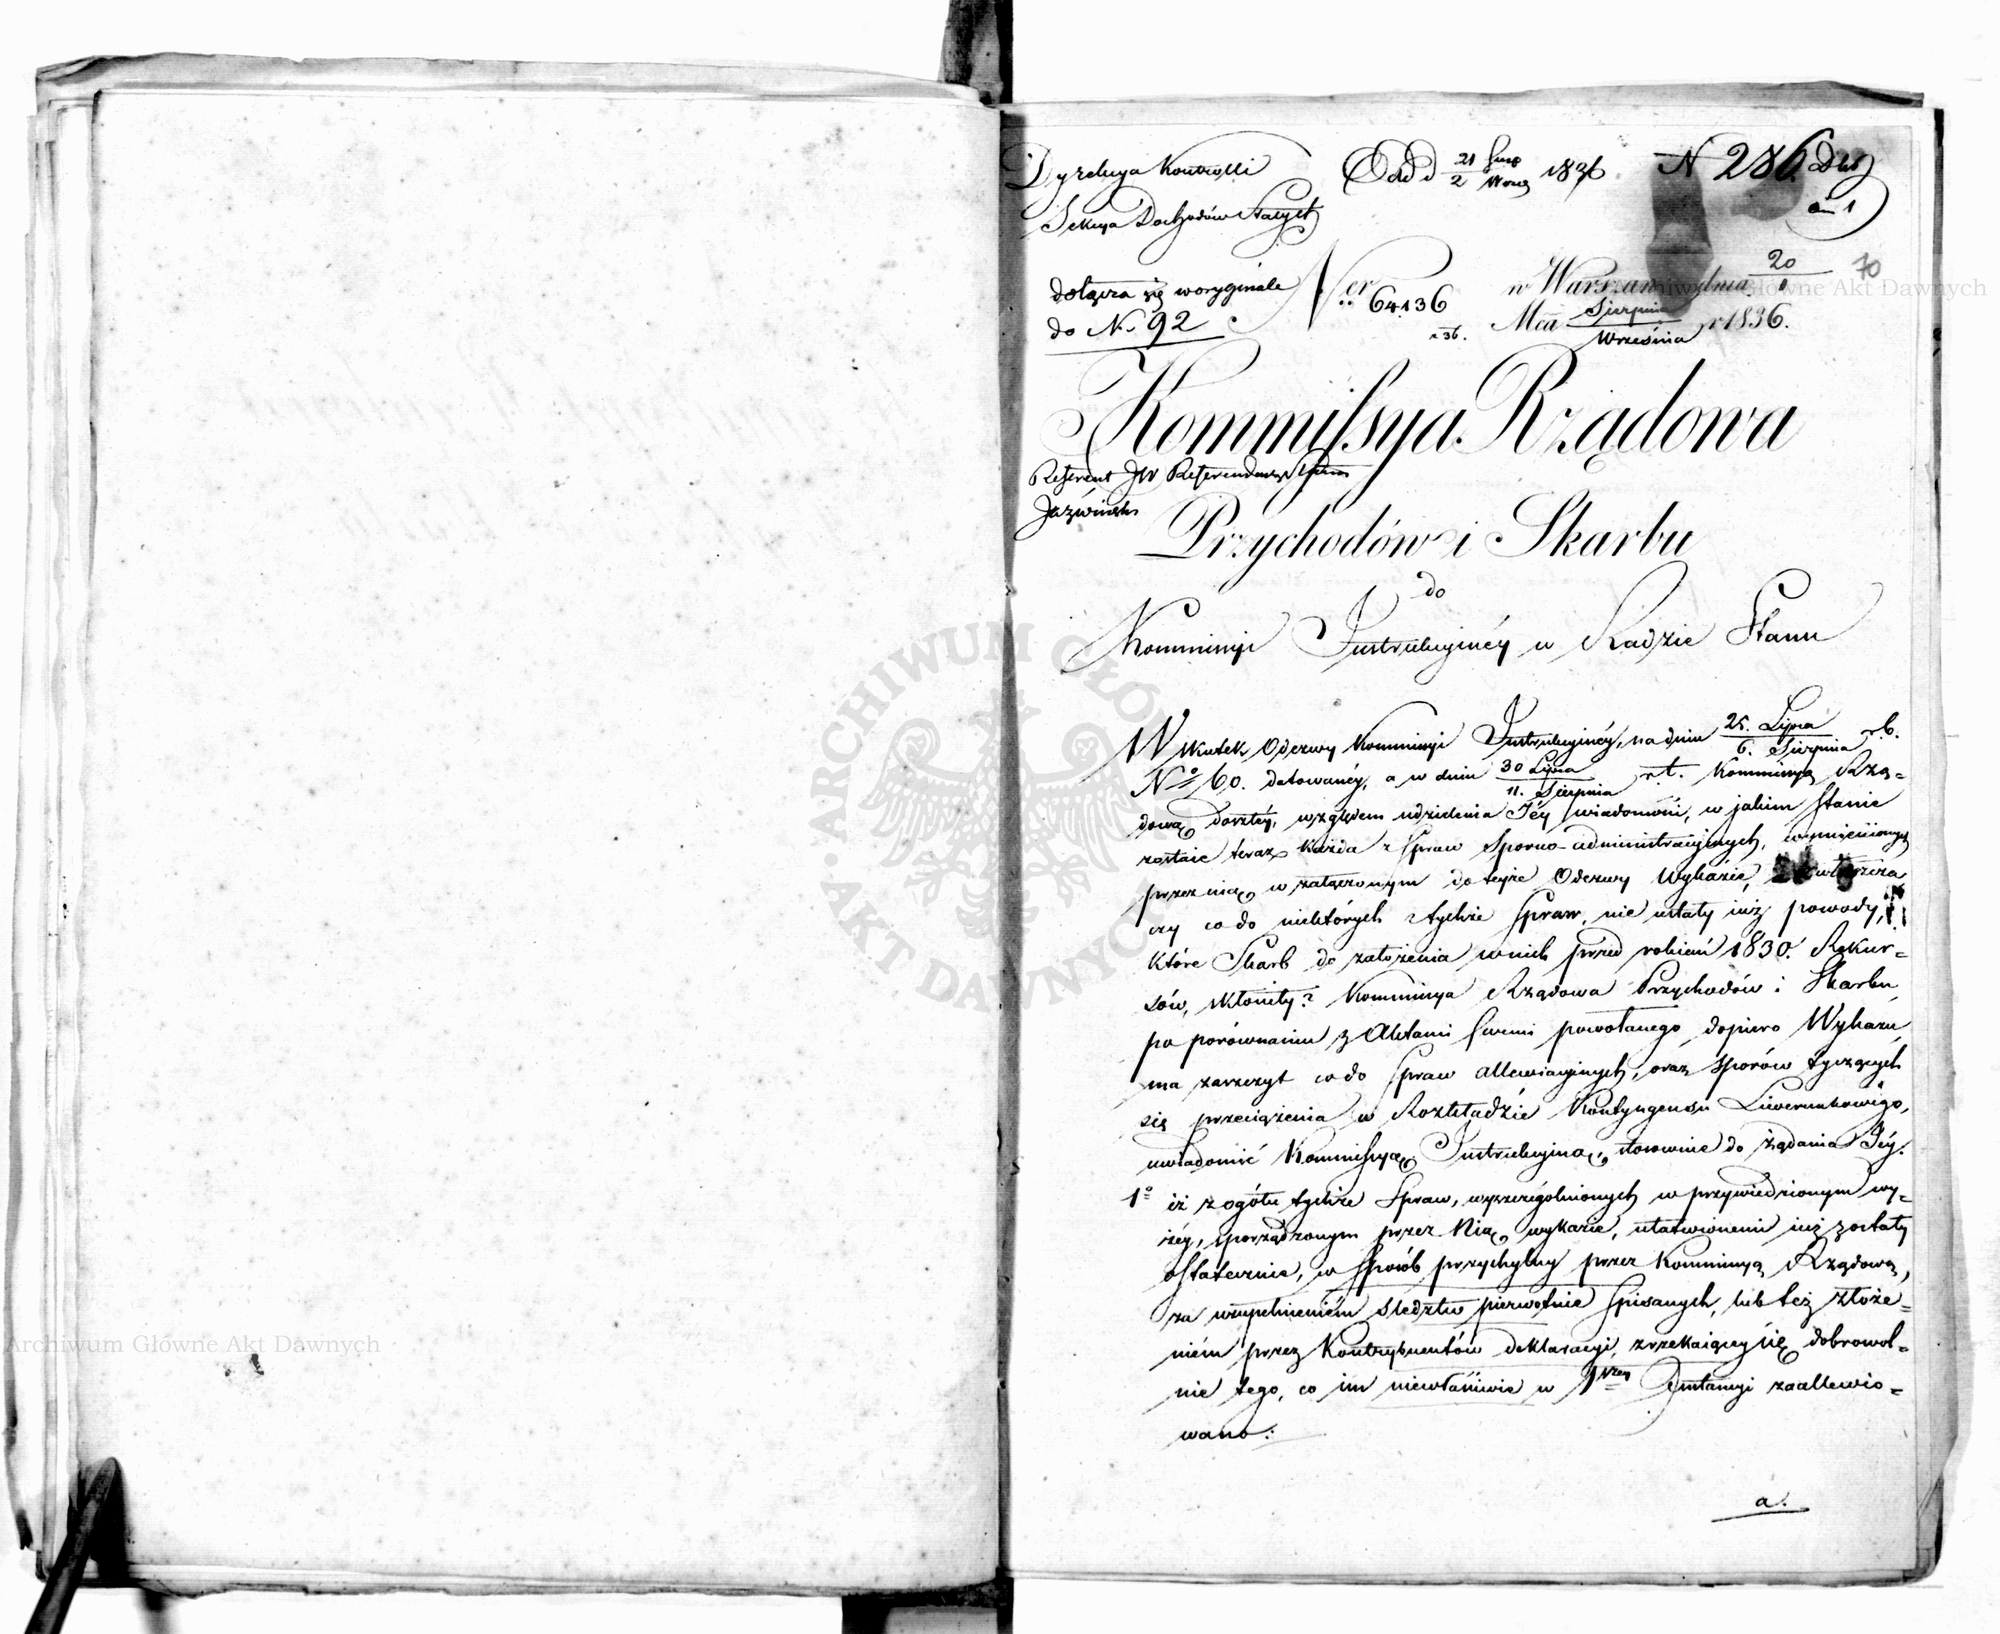 Dyrekcya Kontrolli
Odd d 21/2 Sierp/Wrześ 1836
N 286 Dzt
an 1
Sekcya Dochodów Stałych
70
dołącza się w oryginale
do N. 92
Ner 64136
r 36.
w Warszawie dnia 20
Mca Sierpnia/Września r 1836.
Kommissya Rządowa
Referent JW Referendarz Stanu
Jaźwiński
Przychodów i Skarbu
do
Kommissyi Instrukcyinéy w Radzie Stanu
W skutek Odezwy Kommissyi Instrukcyinéy, na dniu 25. Lipca/6. Sierpnia r.b.
No 60. datowanéy, a w dniu 30 Lipca/11. Sierpnia r.t. Kommissyą Rzą=
dową doszłéy, względem udzielenia Jéy wiadomości, w jakim stanie
zostaie teraz każda z Spraw Sporno-administracyinych, umieszczonych
przez nią, w załączonym do teyże Odezwy Wykazie, zwłaszcza
czy co do niektórych z tychże Spraw, nie ustały iuż powody,
które Skarb do założenia w nich przed rokiem 1830. Rekur=
sów, skłoniły? Kommissya Rządowa Przychodów i Skarbu
po porównaniu z Aktami swemi powołanego dopiero Wykazu,
ma zaszczyt co do Spraw allewiacyinych, oraz sporów tyczących
się przeciążenia w Rozkładzie Kontyngensu Liwerunkowégo,
uwiadomić Kommissyą Instrukcyiną, stosownie do żądania Jéy.
1o iż z ogółu tychże Spraw, wyszczególnionych w przywiedzionym wy=
żéy, sporządzonym przez Nią, wykazie, ułatwionemi iuż zostały
ostatecznie, w sposób przychylny przez Kommissyą Rządową,
za uzupełnieniem śledztw pierwotnie spisanych, lub też złoże=
niém przez Kontrybuentów deklaracyi, zrzekaiącéy się dobrowol=
nie tego, co im niewłaściwie w 1wszey Instancyi zaallewio=
wano:
a.
Archiwum Główne Akt Dawnych
Archiwum Główne Akt Dawnych
ARCHIWUM GŁÓWNE AKT DAWNYCH